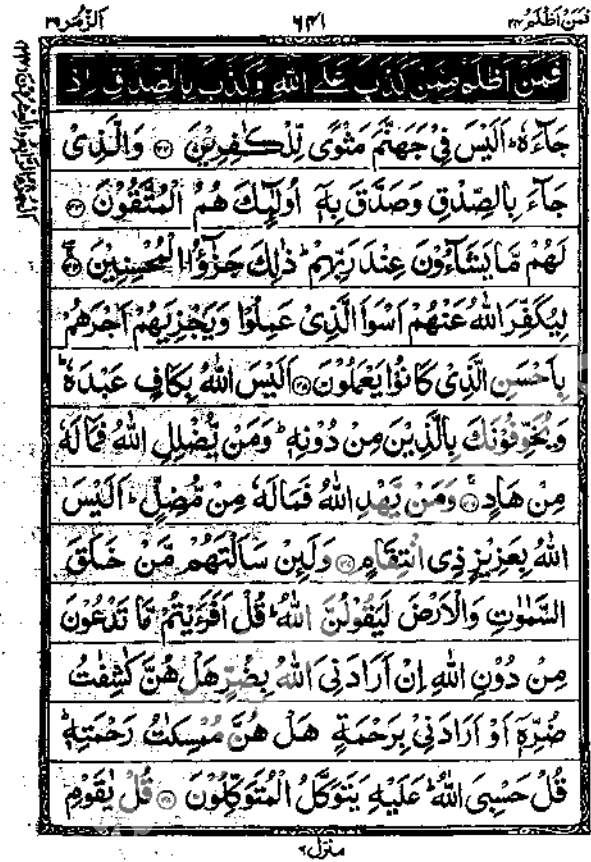 فمن اظلم ۲۴ ۶۴۱ الزمر ۳۹
فَمَنْ اَظْلَمُ مِمَّنْ كَذَبَ عَلَی اللّٰهِ وَكَذَّبَ بِالصِّدْقِ اِذْ
جَآءَهٗ ؕ اَلَیْسَ فِیْ جَهَنَّمَ مَثْوًی لِّلْكٰفِرِیْنَ ۝۳۲ وَالَّذِیْ
جَآءَ بِالصِّدْقِ وَصَدَّقَ بِهٖۤ اُولٰٓىِٕكَ هُمُ الْمُتَّقُوْنَ ۝۳۳
لَهُمْ مَّا یَشَآءُوْنَ عِنْدَ رَبِّهِمْ ؕ ذٰلِكَ جَزٰٓؤُا الْمُحْسِنِیْنَ ۝۳۴
لِیُكَفِّرَ اللّٰهُ عَنْهُمْ اَسْوَاَ الَّذِیْ عَمِلُوْا وَیَجْزِیَهُمْ اَجْرَهُمْ
بِاَحْسَنِ الَّذِیْ كَانُوْا یَعْمَلُوْنَ ۝۳۵ اَلَیْسَ اللّٰهُ بِكَافٍ عَبْدَهٗ ؕ
وَیُخَوِّفُوْنَكَ بِالَّذِیْنَ مِنْ دُوْنِهٖ ؕ وَمَنْ یُّضْلِلِ اللّٰهُ فَمَا لَهٗ
مِنْ هَادٍ ۝۳۶ وَمَنْ یَّهْدِ اللّٰهُ فَمَا لَهٗ مِنْ مُّضِلٍّ ؕ اَلَیْسَ
اللّٰهُ بِعَزِیْزٍ ذِی انْتِقَامٍ ۝۳۷ وَلَىِٕنْ سَاَلْتَهُمْ مَّنْ خَلَقَ
السَّمٰوٰتِ وَالْاَرْضَ لَیَقُوْلُنَّ اللّٰهُ ؕ قُلْ اَفَرَءَیْتُمْ مَّا تَدْعُوْنَ
مِنْ دُوْنِ اللّٰهِ اِنْ اَرَادَنِیَ اللّٰهُ بِضُرٍّ هَلْ هُنَّ كٰشِفٰتُ
ضُرِّهٖۤ اَوْ اَرَادَنِیْ بِرَحْمَةٍ هَلْ هُنَّ مُمْسِكٰتُ رَحْمَتِهٖ ؕ
قُلْ حَسْبِیَ اللّٰهُ ؕ عَلَیْهِ یَتَوَكَّلُ الْمُتَوَكِّلُوْنَ ۝۳۸ قُلْ یٰقَوْمِ
منزل ۶